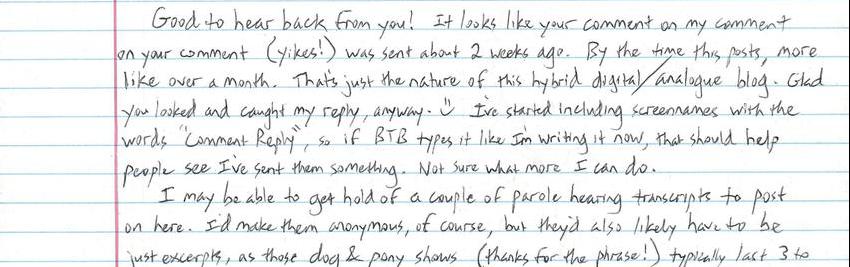 Good to hear back from you! It looks like your comment on my comment
on your comment (yikes!) was sent about 2 weeks ago. By the time this posts, more
like over a month. That's just the nature of this hybrid digital/analogue blog. Glad
you looked and caught my reply, anyway. ☺ I've started including screennames with the
words "Comment Reply", so if BTB types it like I'm writing it now, that should help
people see I've sent them something. Not sure what more I can do.
I may be able to get hold of a couple of parole hearing transcripts to post
on here. I'd make them anonymous, of course, but they'd also likely have to be
just excerpts, as those dog & pony shows (thanks for the phrase!) typically last 3 to